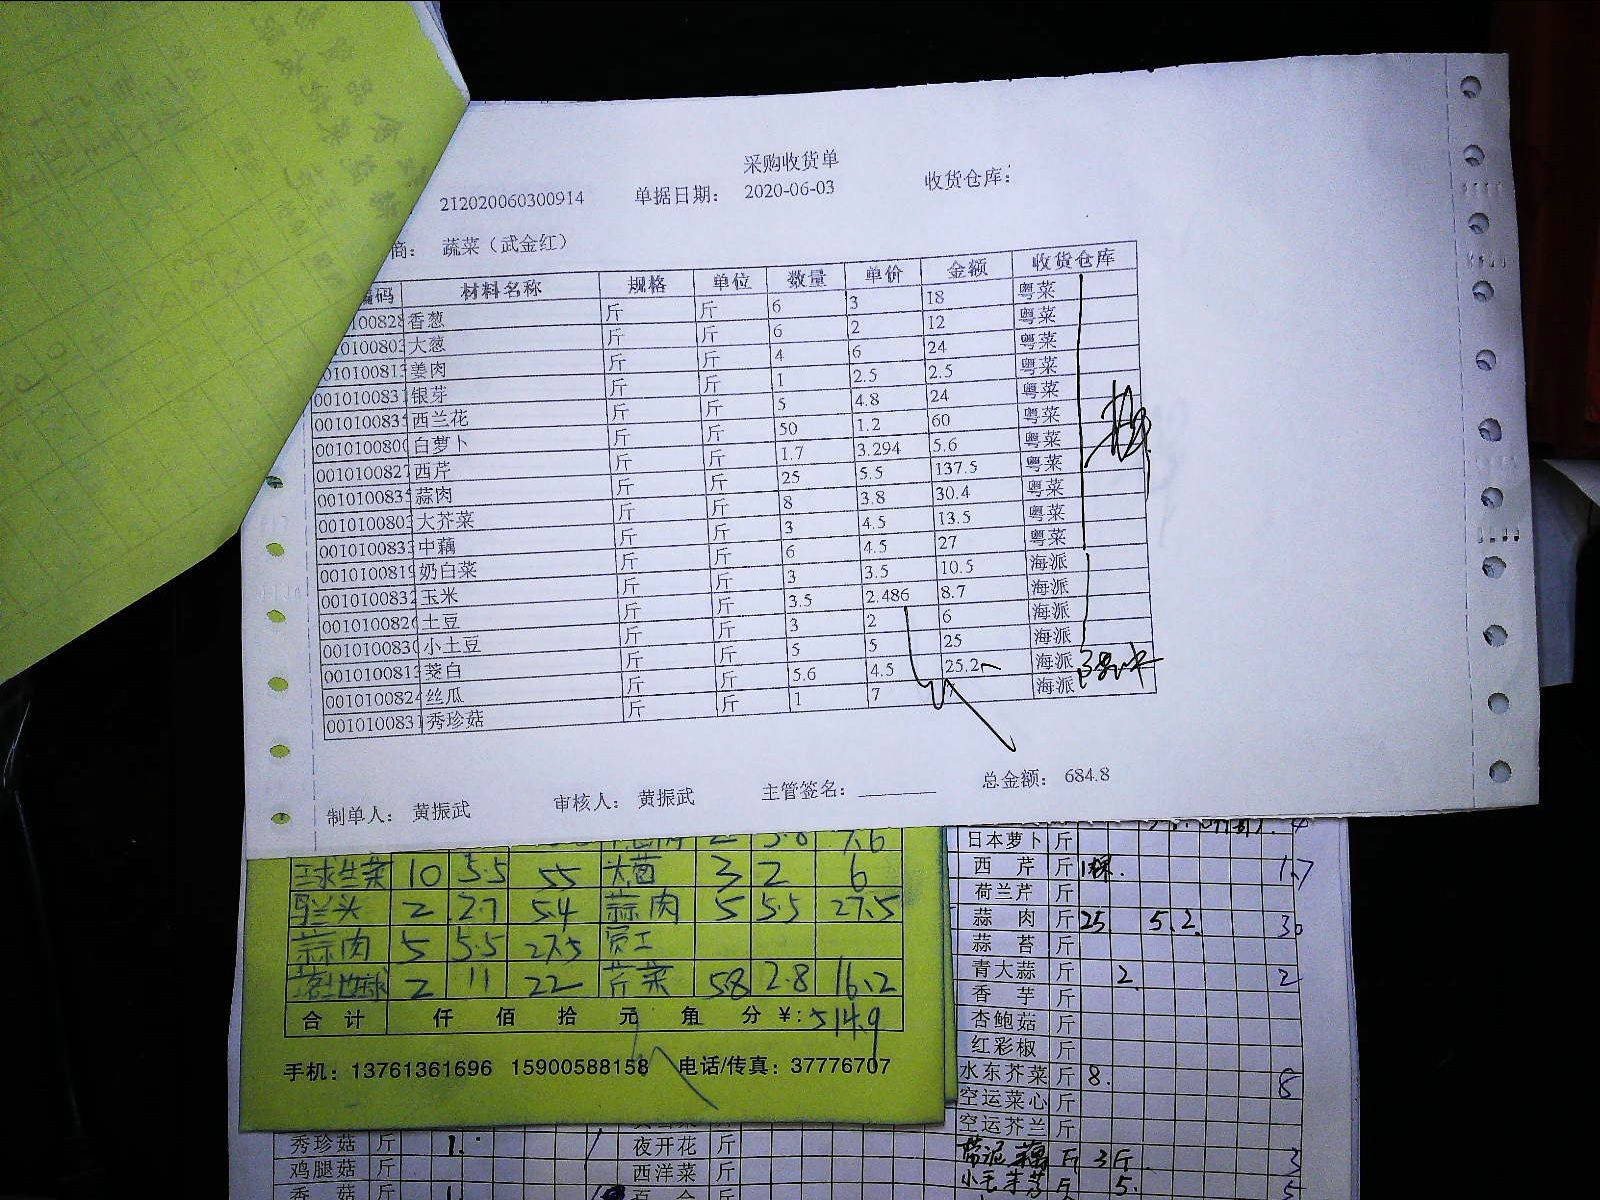 采购收货单
212020060300914 单据日期： 2020-06-03 收货仓库：
商： 蔬菜（武金红）
编码 材料名称 规格 单位 数量 单价 金额 收货仓库
0100828 香葱 斤 斤 6 3 18 粤菜
010100803 大葱 斤 斤 6 2 12 粤菜
010100813 姜肉 斤 斤 4 6 24 粤菜
0010100831 银芽 斤 斤 1 2.5 2.5 粤菜
0010100835 西兰花 斤 斤 5 4.8 24 粤菜
0010100800 白萝卜 斤 斤 50 1.2 60 粤菜
0010100827 西芹 斤 斤 1.7 3.294 5.6 粤菜
0010100835 蒜肉 斤 斤 25 5.5 137.5 粤菜
0010100803 大芥菜 斤 斤 8 3.8 30.4 粤菜
0010100833 中藕 斤 斤 3 4.5 13.5 粤菜
0010100819 奶白菜 斤 斤 6 4.5 27 粤菜
0010100832 玉米 斤 斤 3 3.5 10.5 海派
0010100826 土豆 斤 斤 3.5 2.486 8.7 海派
0010100830 小土豆 斤 斤 3 2 6 海派
0010100813 茭白 斤 斤 5 5 25 海派
0010100824 丝瓜 斤 斤 5.6 4.5 25.2 海派
0010100831 秀珍菇 斤 斤 1 7 海派
制单人： 黄振武 审核人： 黄振武 主管签名： 总金额： 684.8
5.8 7.6
球生菜 10 5.5 55 大葱 3 2 6
马兰头 2 2.7 5.4 蒜肉 5 5.5 27.5
蒜肉 5 5.5 27.5 员工
2 11 22 芹菜 5.8 2.8 16.2
合计 仟 佰 拾 元 角 分 ¥：514.9
手机：13761361696 15900588158 电话/传真：37776707
日本萝卜 斤
西芹 斤 1棵. 1.7
荷兰芹 斤
蒜肉 斤 25 5. 2. 30
蒜苔 斤
青大蒜 斤 2. 2
香芋 斤
杏鲍菇 斤
红彩椒 斤
水东芥菜 斤 8. 8
空运菜心 斤
空运芥兰 斤
秀珍菇 斤 1. 1 夜开花 斤 带泥藕 斤 3斤. 3
鸡腿菇 斤 西洋菜 斤 小毛芋艿 斤 5. 5
香菇 斤 1. 百合 斤